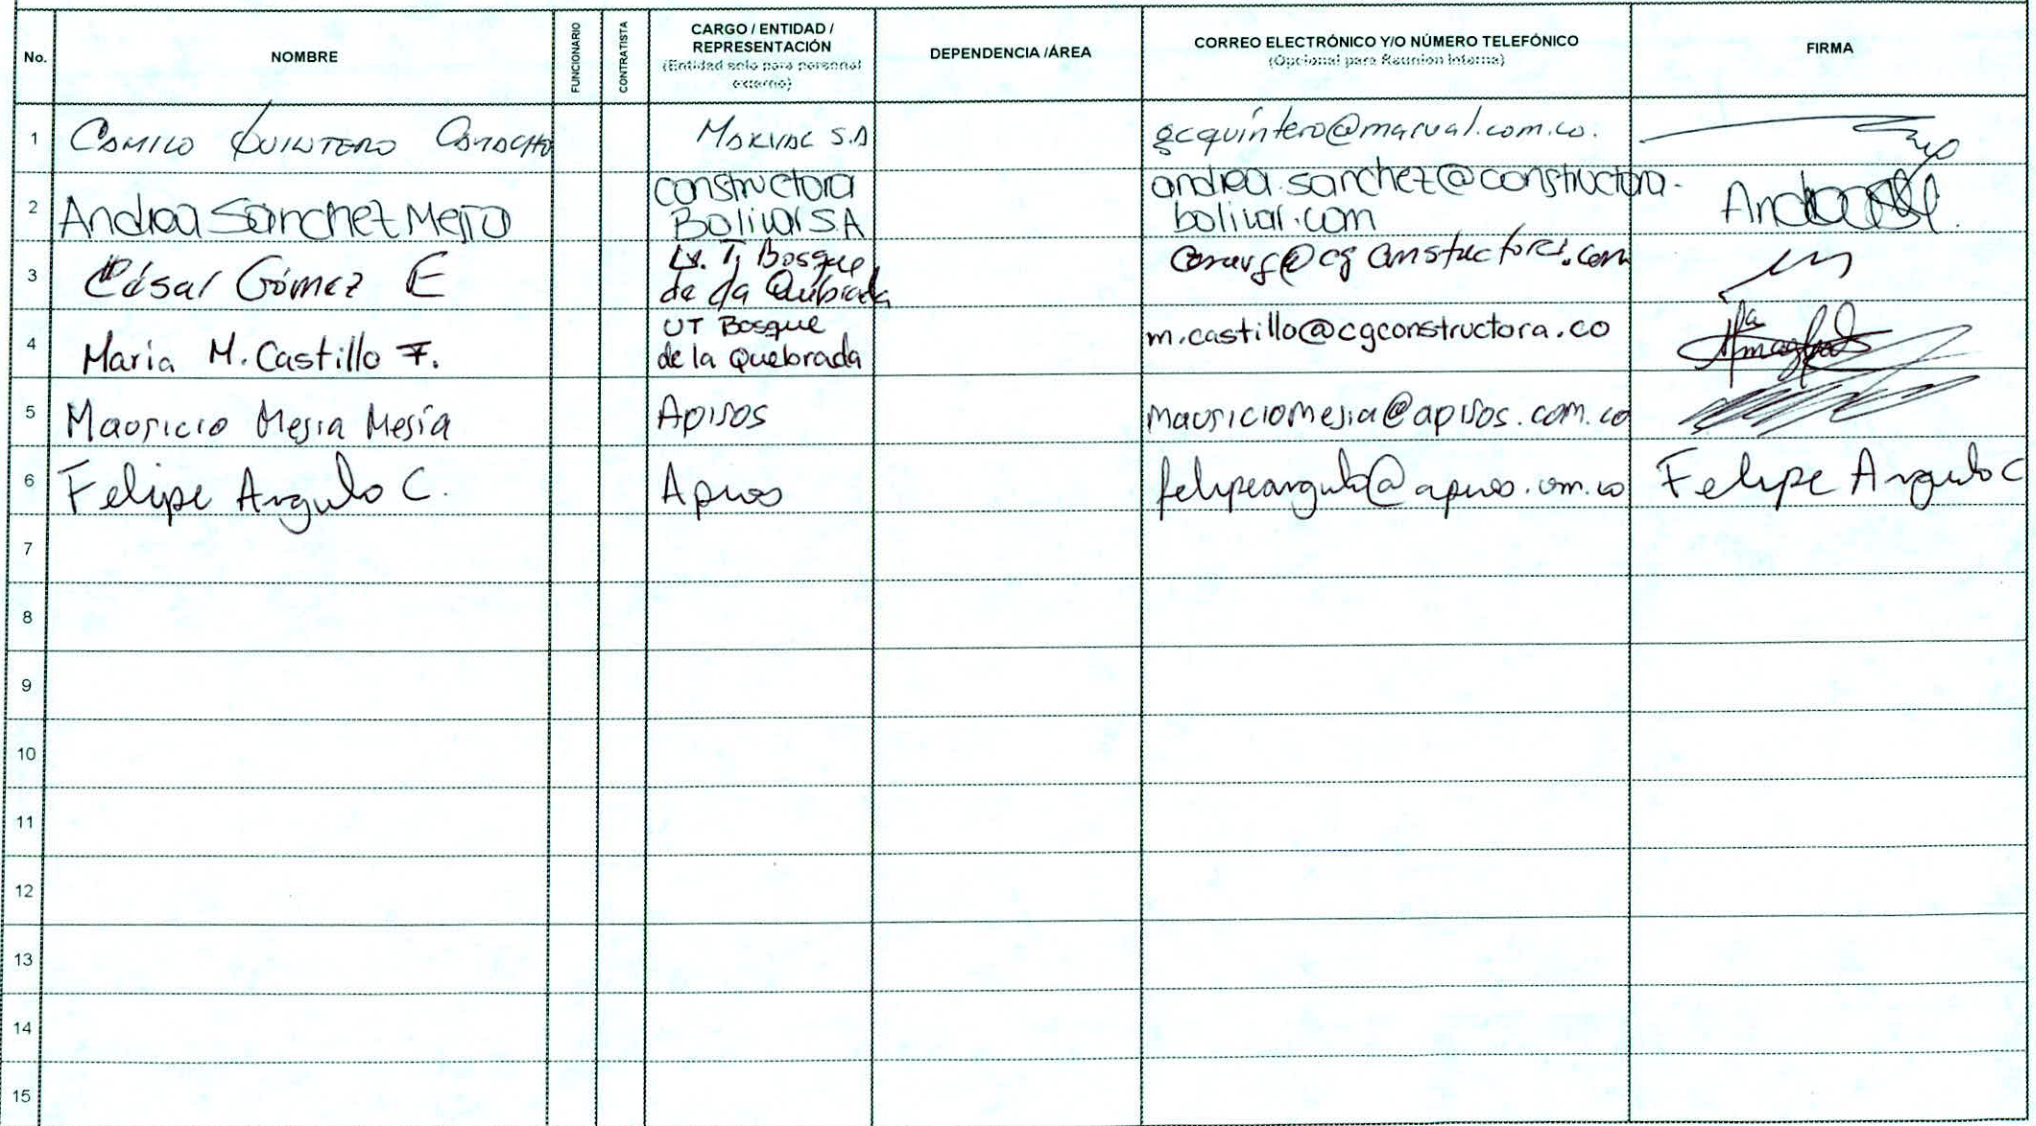 No.
NOMBRE
FUNCIONARIO
CONTRATISTA
CARGO / ENTIDAD /
REPRESENTACIÓN
(Entidad solo para personal
externo)
DEPENDENCIA /ÁREA
CORREO ELECTRÓNICO Y/O NÚMERO TELEFÓNICO
(Opcional para Reunion Interna)
FIRMA
1 CAMILO QUINTERO CAMACHO MARVAL S.A gcquintero@marval.com.co.
2 Andrea Sanchez Mejia
constructora
Bolivar S.A
andrea.sanchez@constructora-
bolivar.com
Andrea
3 César Gómez E
Bosque
de la Quebrada
constructores.com
4 Maria M. Castillo F.
UT Bosque
de la Quebrada
m.castillo@cgconstructora.co
5 Mauricio Mesia Mesía Apiros mauriciomesia@apiros.com.co
6 Felipe Angulo C. Apiros felipeangulo@apiros.com.co Felipe Angulo C
7
8
9
10
11
12
13
14
15